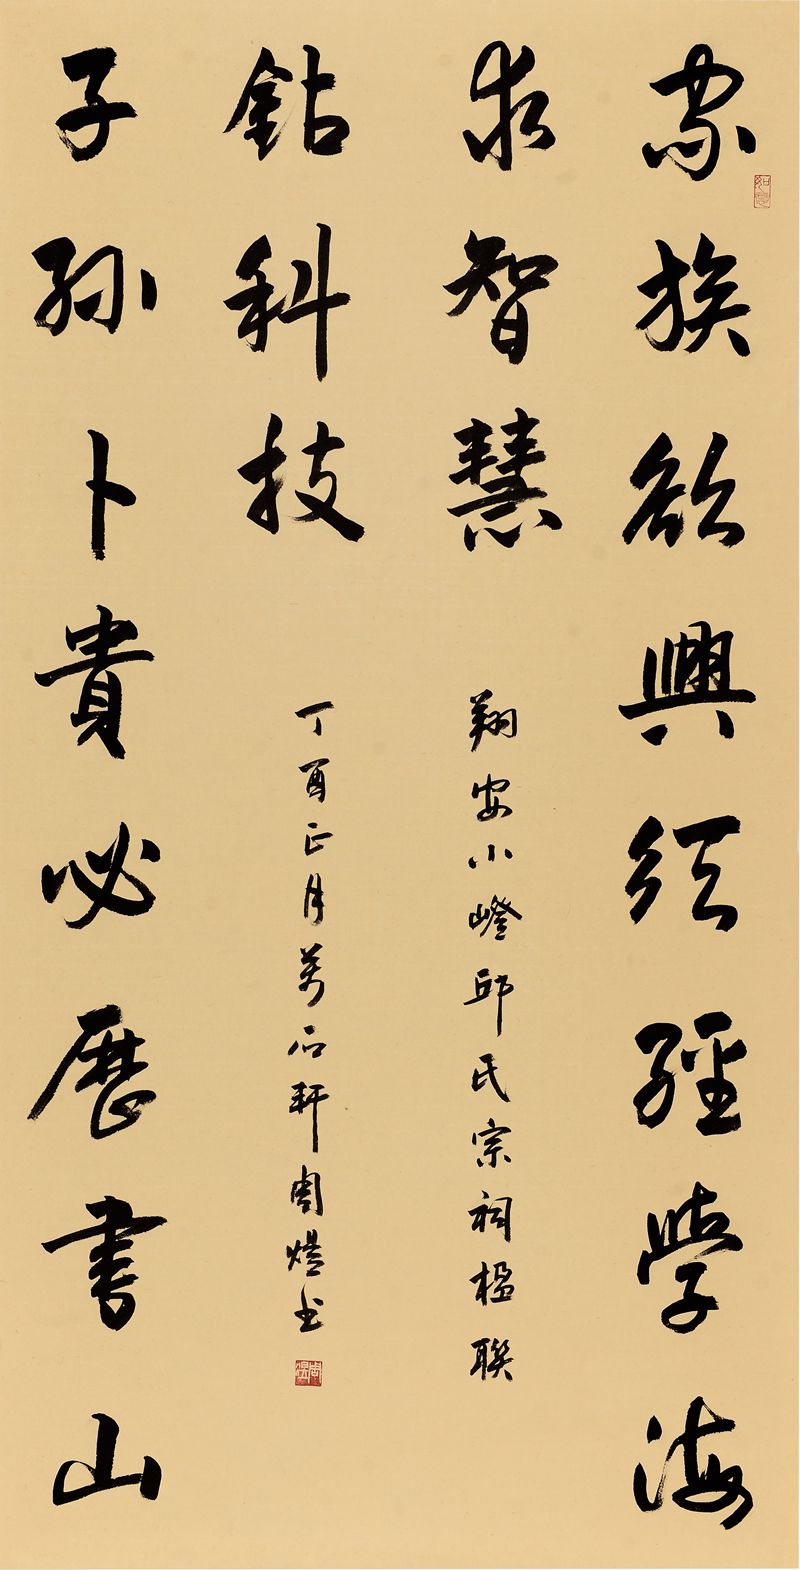 家族欲興須經學海
求智慧
翔安小嶝邱氏宗祠楹聯
子孫卜貴必歷書山
鉆科技
丁酉正月萬石軒周書